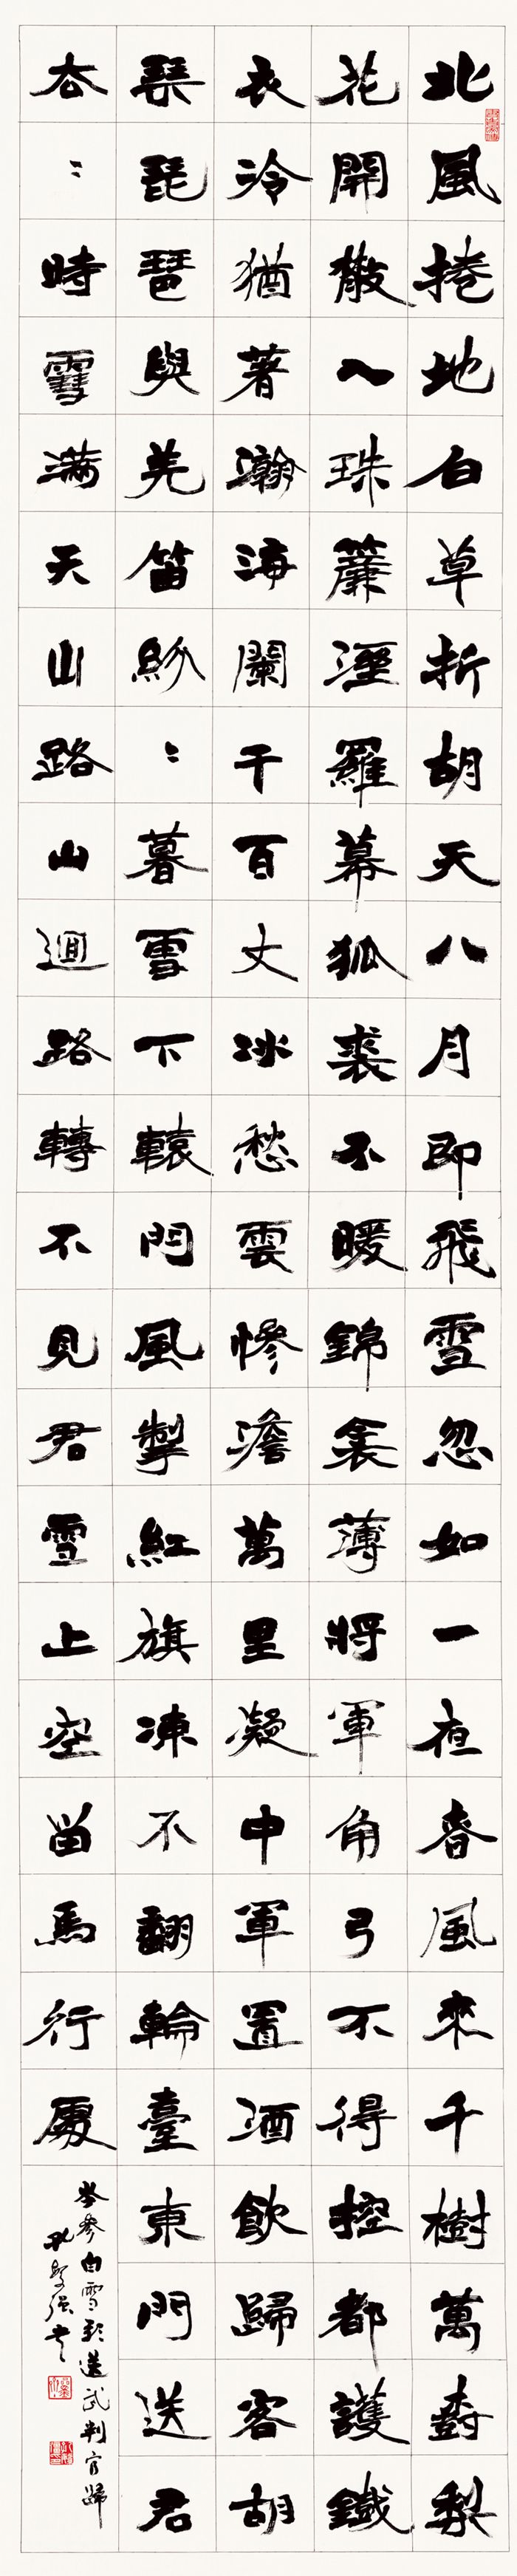 北風捲地白草折胡天八月即飛雪忽如一夜春風來千樹萬樹梨
花開散入珠簾溼羅幕狐裘不暖錦衾薄將軍角弓不得控都護鐵
衣冷猶著瀚海闌干百丈冰愁雲慘澹萬里凝中軍置酒飲歸客胡
琴琵琶與羌笛紛〻暮雪下轅門風掣紅旗凍不翻輪臺東門送君
去〻時雪滿天山路山迴路轉不見君雪上空留馬行處
岑參白雪歌送武判官歸